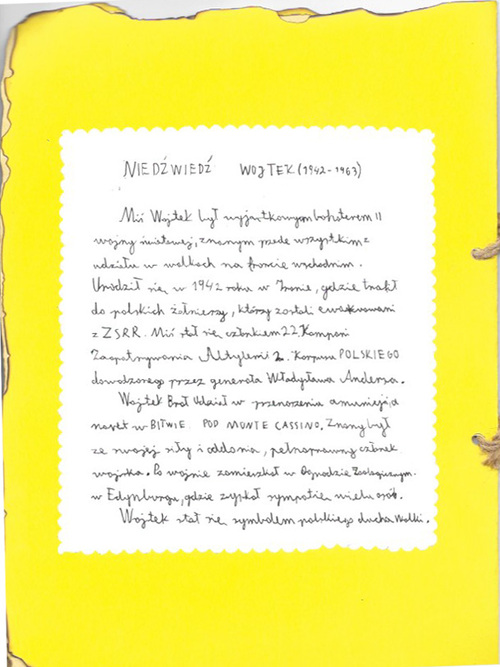 NIEDŹWIEDŹ WOJTEK (1942-1963)
Miś Wojtek był wyjątkowym bohaterem II
wojny światowej, znanym przede wszystkim z
udziału w walkach na froncie wschodnim.
Urodził się w 1942 roku w Iranie, gdzie trafił
do polskich żołnierzy, którzy zostali ewakuowani
z ZSRR. Miś stał się członkiem 22 Kompani
Zaopatrywania Artylerii 2. Korpusu POLSKIEGO
dowodzonego przez generała Władysława Andersa.
Wojtek Brał Udział w przenoszeniu amunicji, a
nawet w BITWIE POD MONTE CASSINO. Znany był
ze swojej siły i oddania, pełnoprawny członek
wojska. Po wojnie zamieszkał w Ogrodzie Zoologicznym.
w Edynburgu, gdzie zyskał sympatię wielu osób.
Wojtek stał się symbolem polskiego ducha Walki.